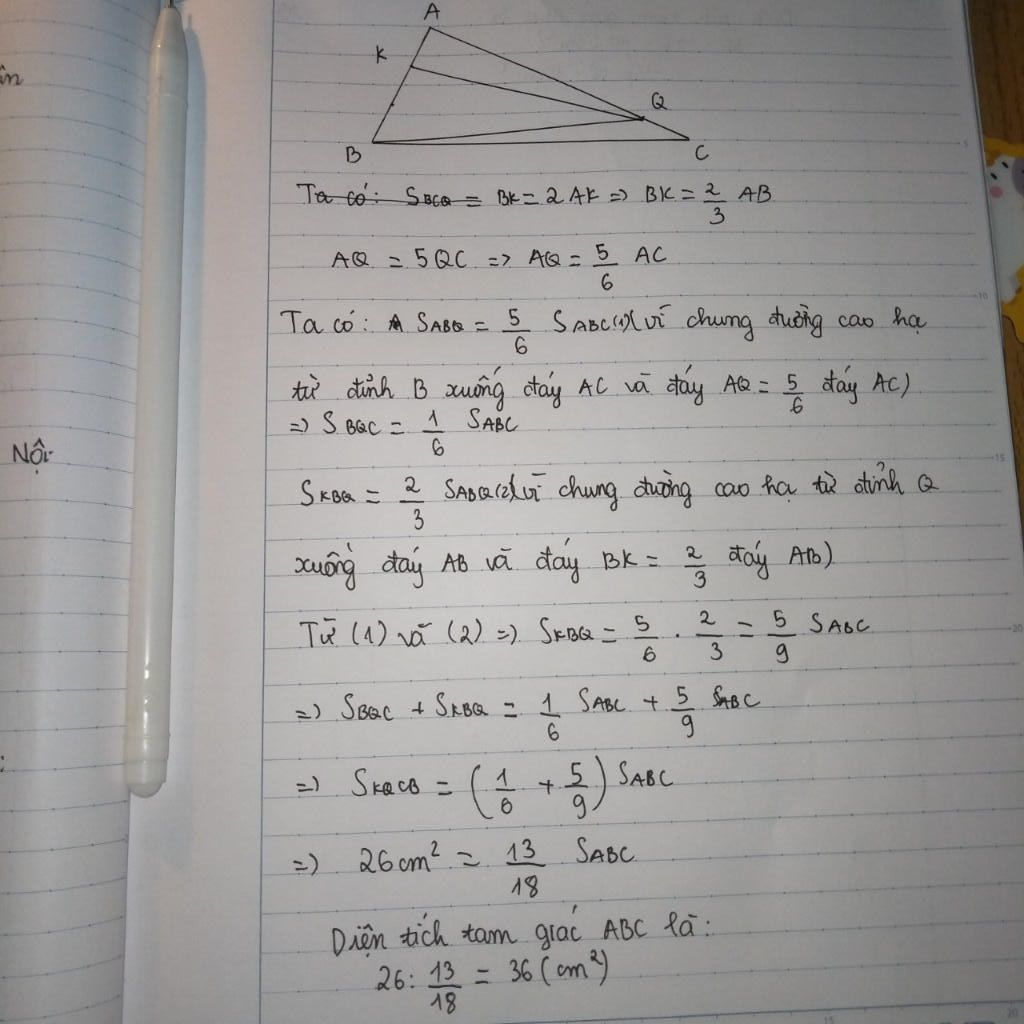 A
K
Q
B
C
Ta có: SBCQ = BK = 2 AK => BK = 2/3 AB
AQ = 5QC => AQ = 5/6 AC
Ta có: SABQ = 5/6 SABC(1)(vì chung đường cao hạ
từ đỉnh B xuống đáy AC và đáy AQ = 5/6 đáy AC)
=> SBQC = 1/6 SABC
Nội
SKBQ = 2/3 SABQ(2)(vì chung đường cao hạ từ đỉnh Q
xuống đáy AB và đáy BK = 2/3 đáy AB)
Từ (1) và (2) => SKBQ = 5/6 . 2/3 = 5/9 SABC
=> SBQC + SKBQ = 1/6 SABC + 5/9 SABC
=> SKQCB = (1/6 + 5/9) SABC
=> 26cm² = 13/18 SABC
Diện tích tam giác ABC là:
26 : 13/18 = 36 (cm²)